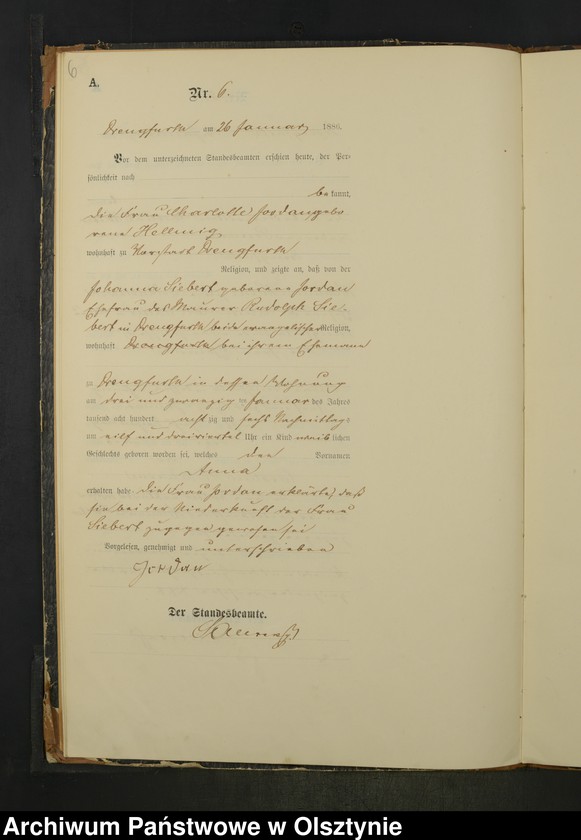 6
A.
Nr. 6.
Drengfurth am 26 Januar 1886.
Vor dem unterzeichneten Standesbeamten erschien heute, der Per-
sönlichkeit nach
bekannt,
die Frau Charlotte Jordan gebo
rene Hellwig
wohnhaft zu Vorstadt Drengfurth
Religion, und zeigte an, daß von der
Johanna Siebert geborene Jordan
Ehefrau des Maurer Rudolph Sie-
bert in Drengfurth beide evangelischer Religion,
wohnhaft Drengfurth bei ihrem Ehemann
zu Drengfurth in dessen Wohnung
am drei und zwanzig ten Januar des Jahres
tausend acht hundert achtzig und sechs Nachmittags
um eilf und dreiviertel Uhr ein Kind weiblichen
Geschlechts geboren worden sei, welches den Vornamen
Anna
erhalten habe. Die Frau Jordan erklärte, daß
sie bei der Niederkunft der Frau
Siebert zugegen gewesen sei
Vorgelesen, genehmigt und unterschrieben
Jordan
Der Standesbeamte.
Archiwum Państwowe w Olsztynie